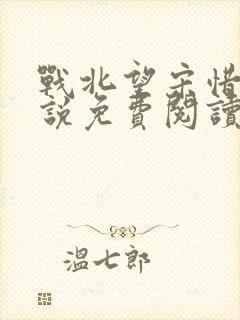 戰北望宋惜
說免費閱讀
溫七郎